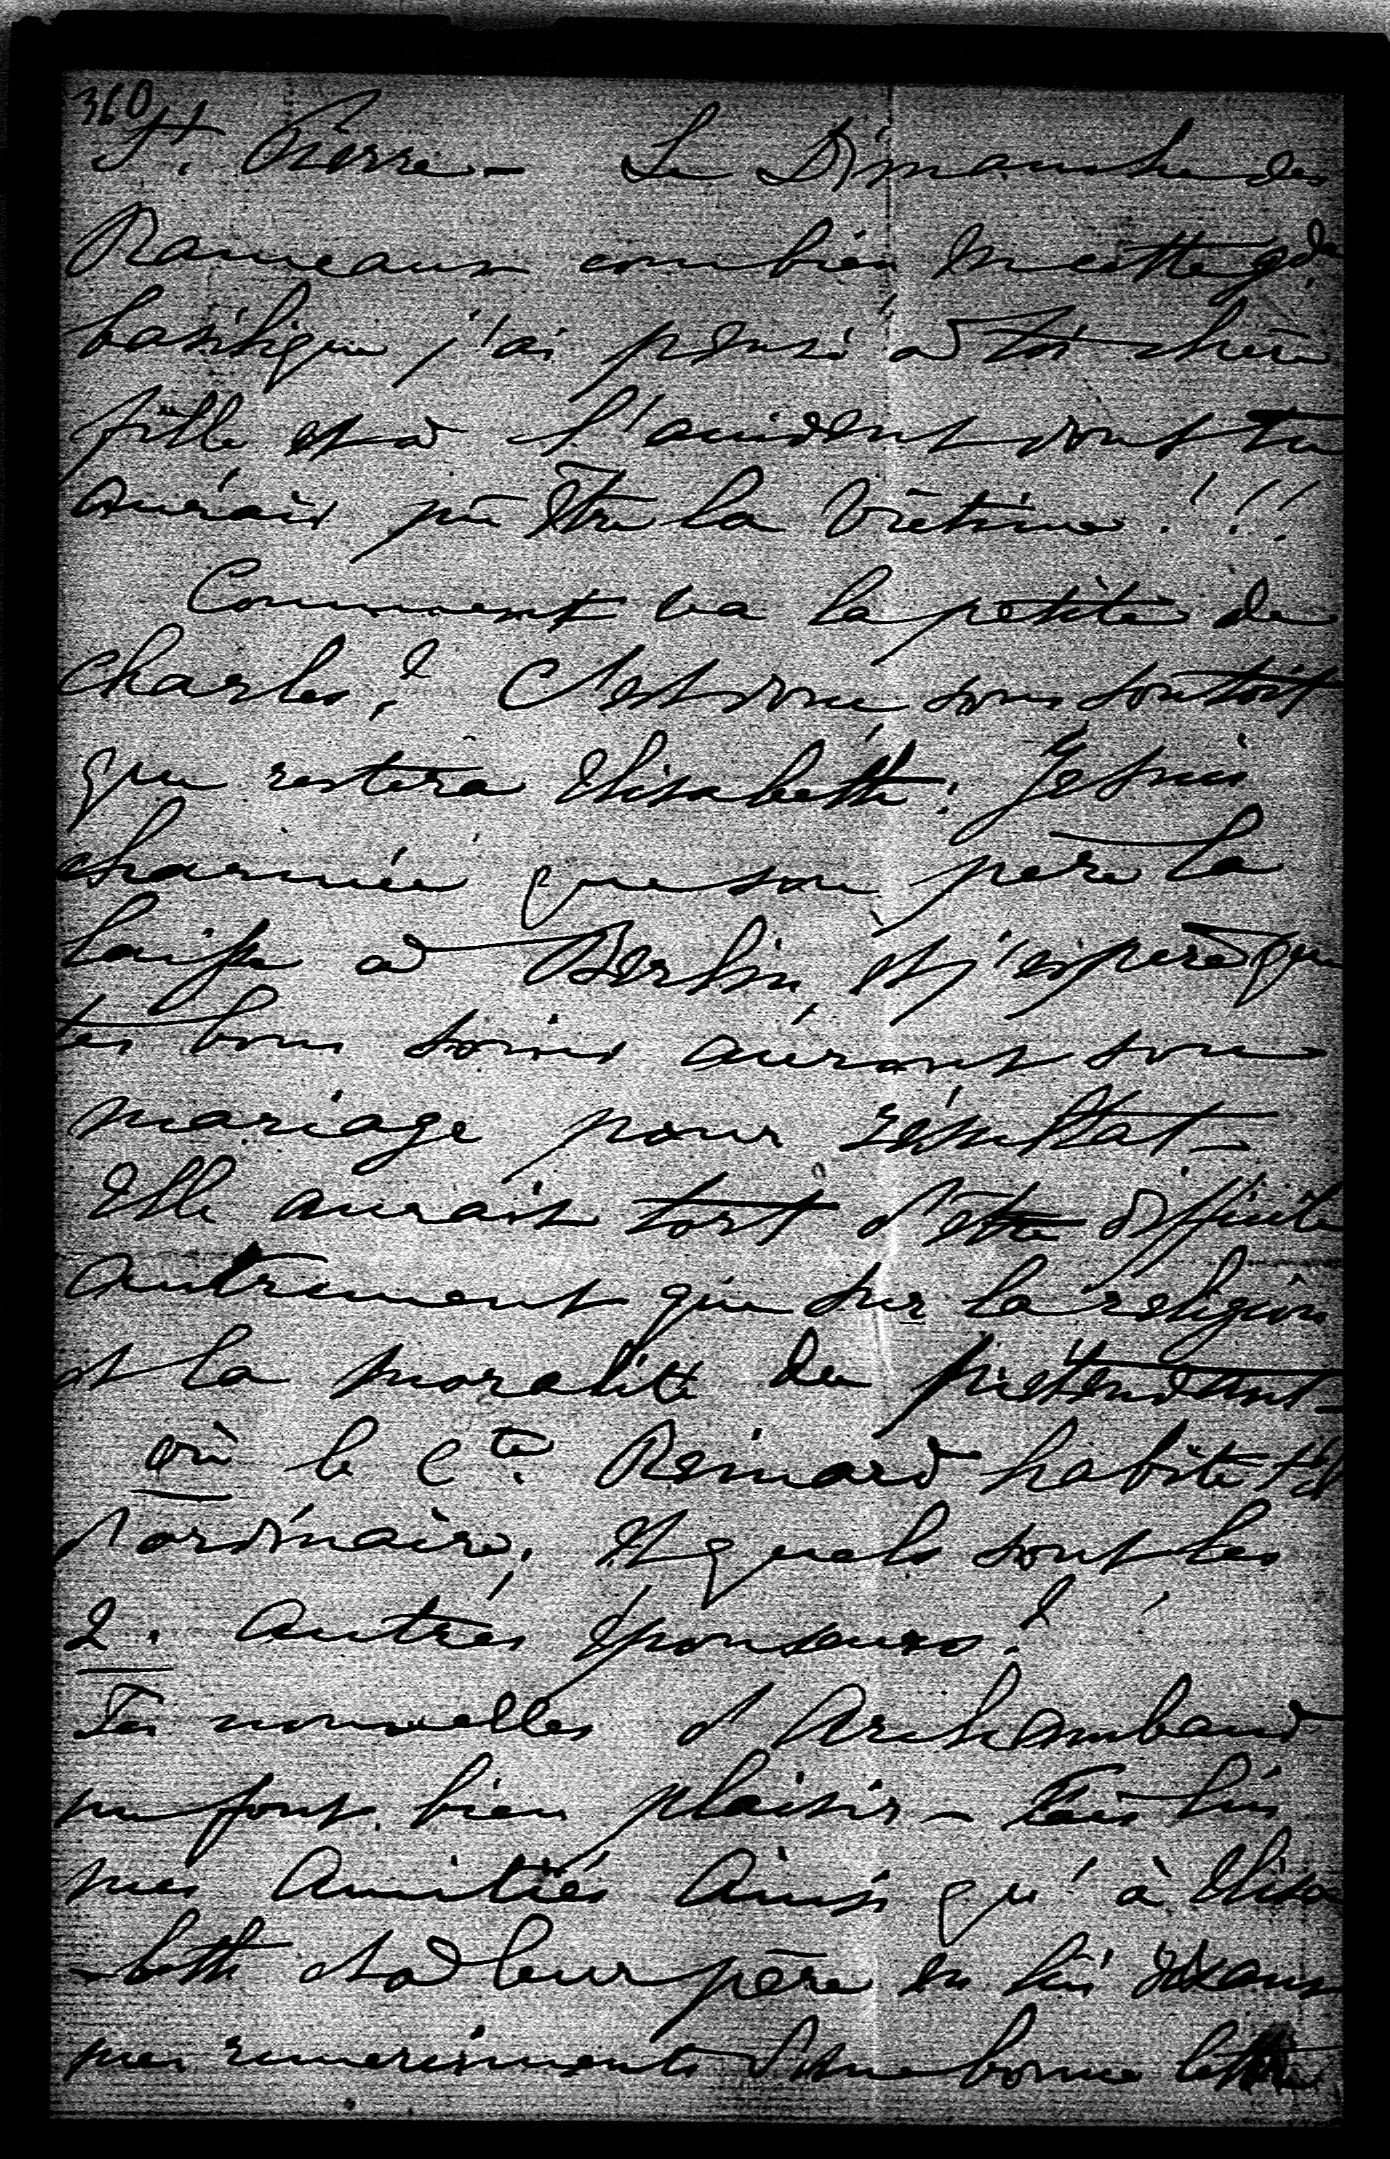 360
St. Pierre - Le Dimanche des
Rameaux combien en cette gde
basilique j'ai pensé à toi chère
fille et à l'accident dont tu
aurais pu être la victime !!!
Comment va la petite de
Charles? C'est donc sous son toit
que restera Elisabeth. Je suis
charmée que son père la
laisse à Berlin, et j'espère que
tes bons soins auront son
mariage pour résultat -
Elle aurait tort d'être difficile
autrement que sur la religion
et la moralité du prétendant -
où le Cte. Renard habite t'il
d'ordinaire. Et quels sont les
2. autres épouseurs?
Tes nouvelles d'Archambaud
me font bien plaisir - Fais lui
mes amitiés ainsi qu'à Elisa
-beth et à leur père en lui
mes remerciments d'une bonne lettre